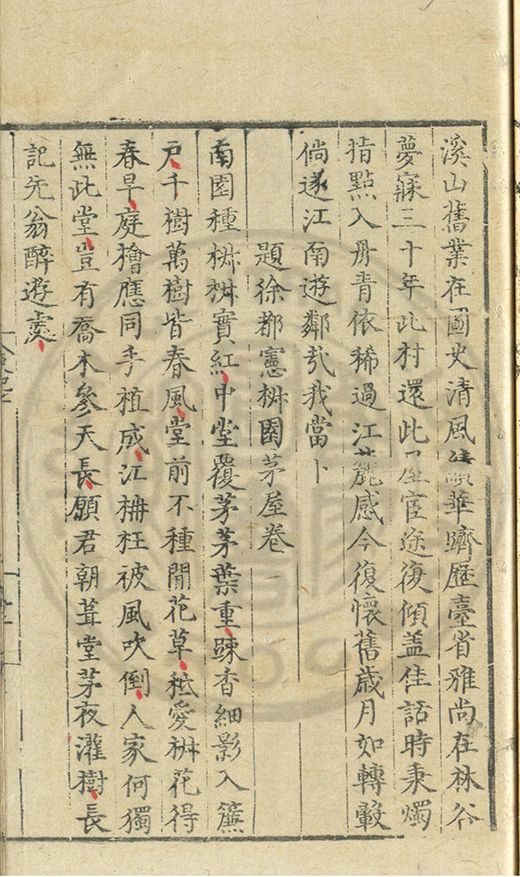 溪山舊業在國史清風華躋歷臺省雅尚在林谷
夢寐三十年此村還此屋宦途復傾盖佳話時秉燭
指點入丹青依稀過江麓感今復懷舊歲月如轉轂
倘遂江南遊鄰哉我當卜
題徐都憲柟園茅屋卷
南園種柟柟實紅中堂覆茅茅葉重踈香細影入簾
戶千樹萬樹皆春風堂前不種閒花草秪愛柟花得
春早庭檜應同手植成江柟枉被風吹倒人家何獨
無此堂豈有喬木參天長願君朝葺堂茅夜灌樹長
記先翁醉遊處